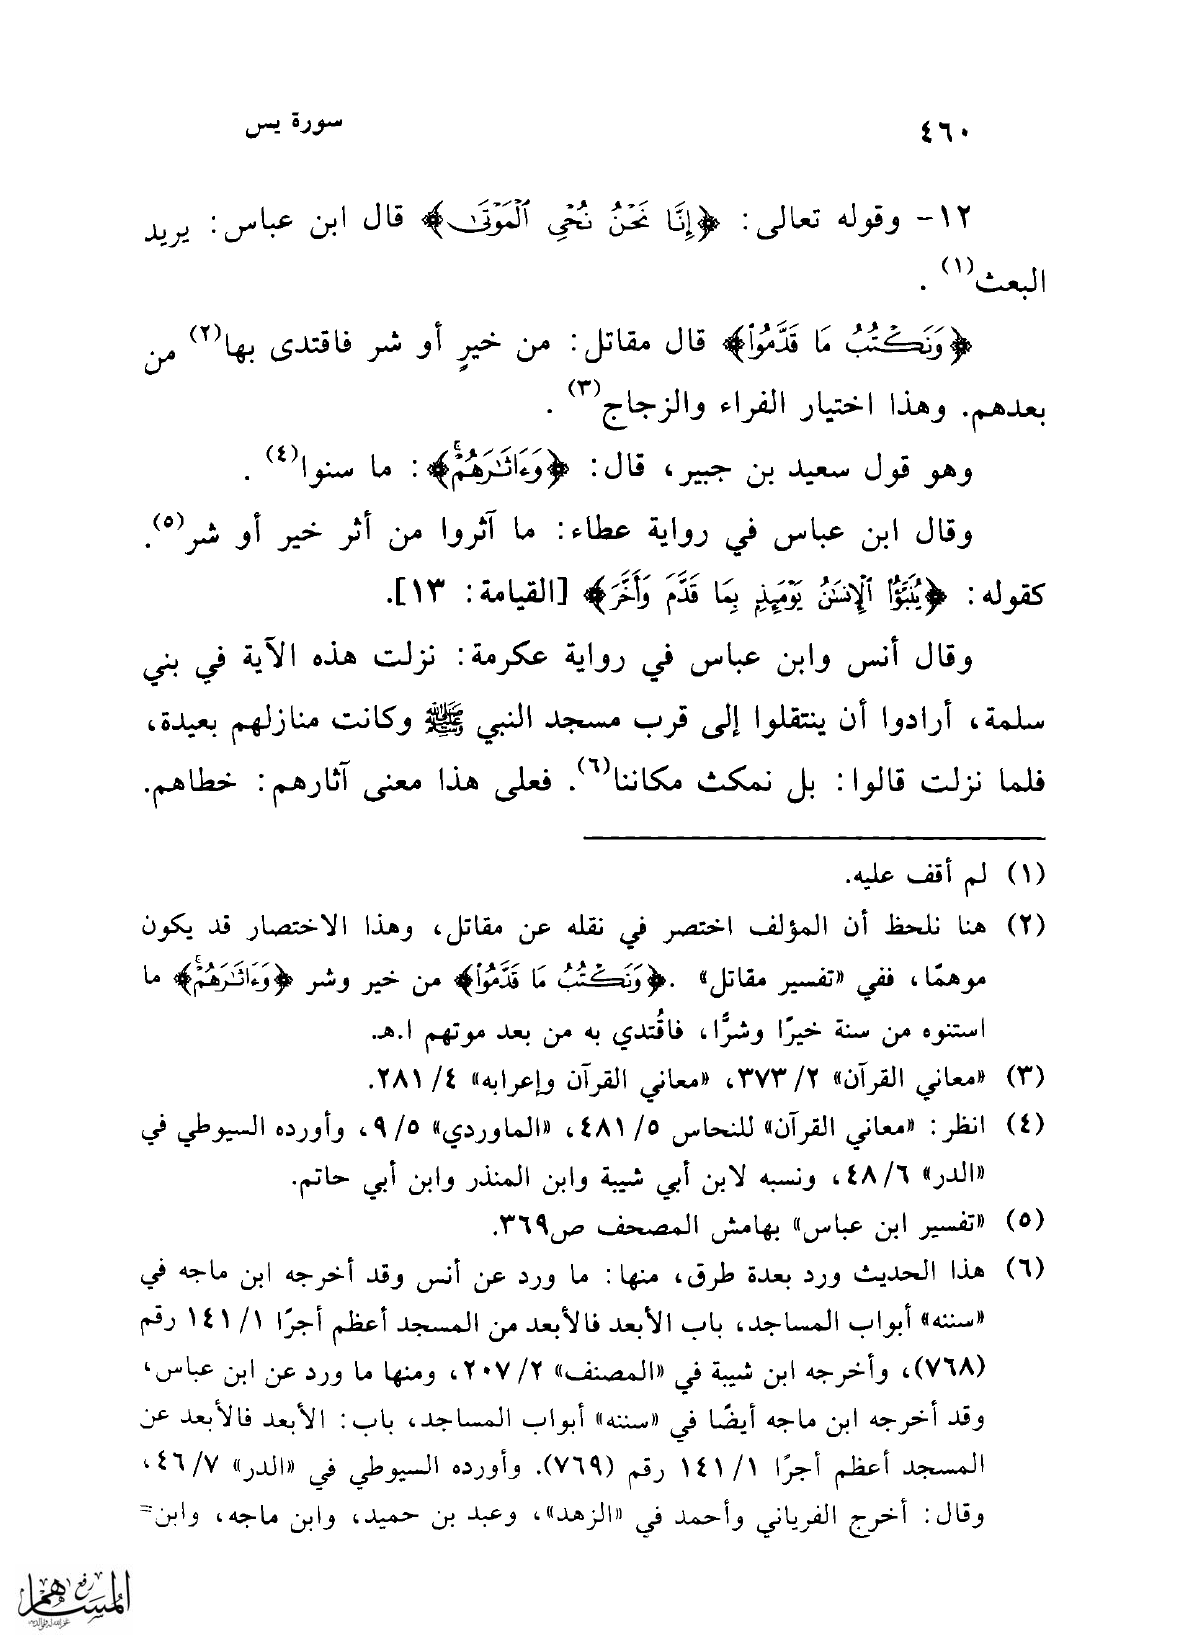 ٤٦٠
سورة يس
١٢- وقوله تعالى: ﴿إِنَّا نَحْنُ نُحْيِ الْمَوْتَىٰ﴾ قال ابن عباس: يريد
البعث(١) .
﴿وَنَكْتُبُ مَا قَدَّمُوا﴾ قال مقاتل: من خيرٍ أو شر فاقتدى بها(٢) من
بعدهم. وهذا اختيار الفراء والزجاج(٣) .
وهو قول سعيد بن جبير، قال: ﴿وَءَاثَٰرَهُمْ﴾: ما سنوا(٤) .
وقال ابن عباس في رواية عطاء: ما آثروا من أثر خير أو شر(٥).
كقوله: ﴿يُنَبَّؤُا الْإِنسَٰنُ يَوْمَئِذٍ بِمَا قَدَّمَ وَأَخَّرَ﴾ [القيامة: ١٣].
وقال أنس وابن عباس في رواية عكرمة: نزلت هذه الآية في بني
سلمة، أرادوا أن ينتقلوا إلى قرب مسجد النبي ﷺ وكانت منازلهم بعيدة،
فلما نزلت قالوا: بل نمكث مكاننا(٦). فعلى هذا معنى آثارهم: خطاهم.
(١) لم أقف عليه.
(٢) هنا نلحظ أن المؤلف اختصر في نقله عن مقاتل، وهذا الاختصار قد يكون
موهمًا، ففي «تفسير مقاتل» .﴿وَنَكْتُبُ مَا قَدَّمُوا﴾ من خير وشر ﴿وَءَاثَٰرَهُمْ﴾ ما
استنوه من سنة خيرًا وشرًّا، فاقُتدي به من بعد موتهم ا.هـ.
(٣) «معاني القرآن» ٢/ ٣٧٣، «معاني القرآن وإعرابه» ٤/ ٢٨١.
(٤) انظر: «معاني القرآن» للنحاس ٥/ ٤٨١، «الماوردي» ٥/ ٩، وأورده السيوطي في
«الدر» ٦/ ٤٨، ونسبه لابن أبي شيبة وابن المنذر وابن أبي حاتم.
(٥) «تفسير ابن عباس» بهامش المصحف ص٣٦٩.
(٦) هذا الحديث ورد بعدة طرق، منها: ما ورد عن أنس وقد أخرجه ابن ماجه في
«سننه» أبواب المساجد، باب الأبعد فالأبعد من المسجد أعظم أجرًا ١/ ١٤١ رقم
(٧٦٨)، وأخرجه ابن شيبة في «المصنف» ٢/ ٢٠٧، ومنها ما ورد عن ابن عباس،
وقد أخرجه ابن ماجه أيضًا في «سننه» أبواب المساجد، باب: الأبعد فالأبعد عن
المسجد أعظم أجرًا ١/ ١٤١ رقم (٧٦٩). وأورده السيوطي في «الدر» ٧/ ٤٦،
وقال: أخرج الفرياني وأحمد في «الزهد»، وعبد بن حميد، وابن ماجه، وابن=